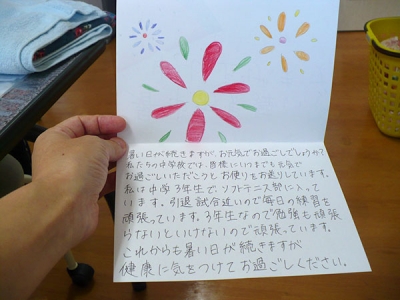 暑い日が続きますが、お元気でお過ごしでしょうか？
私たちの中学校では、皆様にいつまでも元気で
お過ごしいただこうと お便りをお送りしています。
私は中学3年生で、ソフトテニス部に入って
います。引退試合近いので毎日の練習を
頑張っています。3年生なので勉強も頑張
らないといけないので頑張っています。
これからも暑い日が続きますが
健康に気をつけてお過ごしください。